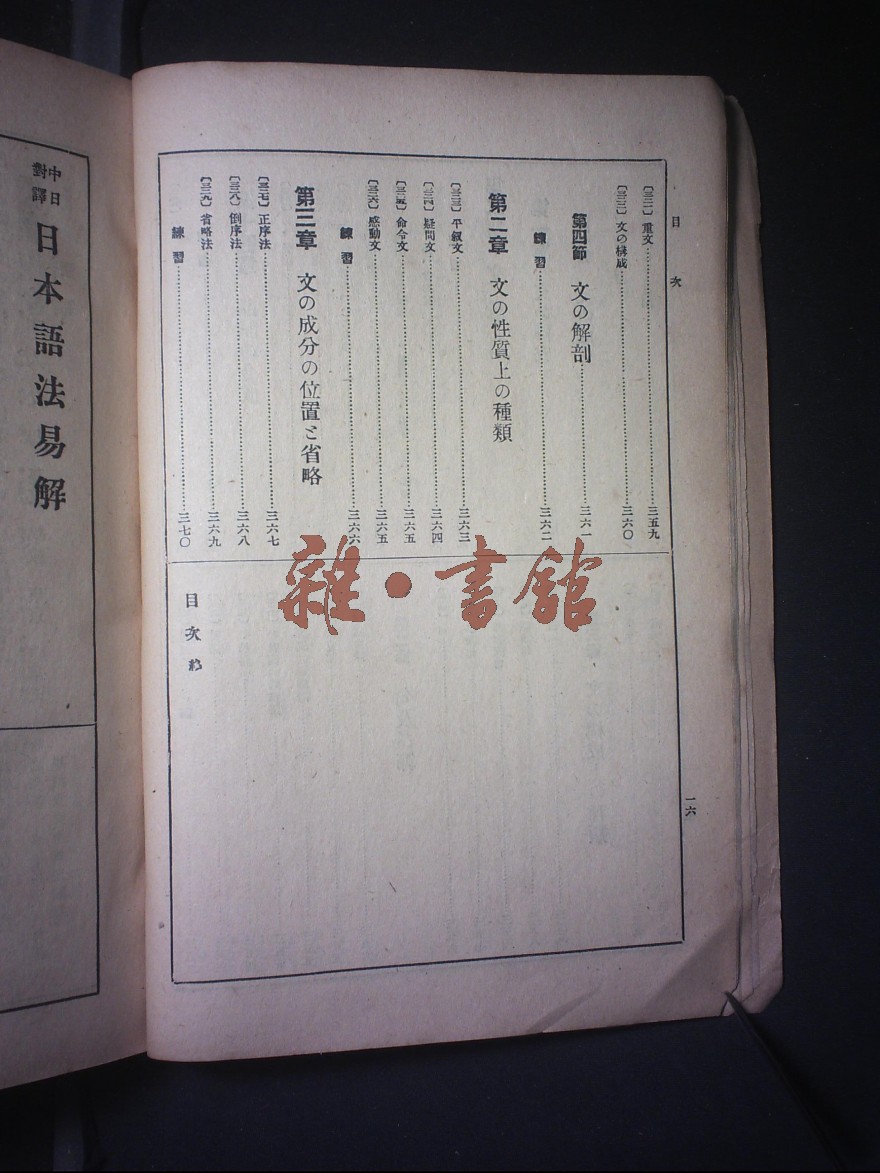 目次
〔三二一〕重文……三五九
〔三二二〕文の構成……三六〇
第四節　文の解剖……三六一
練習……三六二
第二章　文の性質上の種類
〔三二三〕平叙文……三六三
〔三二四〕疑問文……三六四
〔三二五〕命令文……三六五
〔三二六〕感動文……三六五
練習……三六六
第三章　文の成分の位置と省略
〔三二七〕正序法……三六七
〔三二八〕倒序法……三六八
〔三二九〕省略法……三六九
練習……三七〇
目次終
一六
中日
對譯
日本語法易解
雜·書館